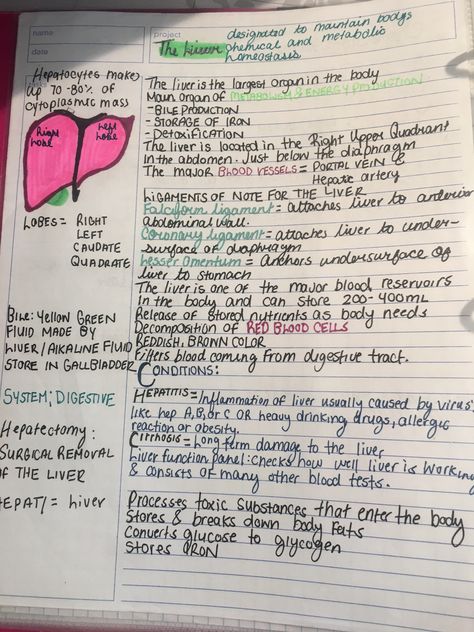 name
date
project
The Liver
designated to maintain bodys
chemical and metabolic
homeostasis
Hepatocytes make
up 70-80% of
cytoplasmic mass
Right
lobe
Left
lobe
LOBES = RIGHT
LEFT
CAUDATE
QUADRATE
Bile: Yellow Green
FLUID MADE BY
LIVER/ALKALINE FLUID
STORE IN GALLBLADDER
SYSTEM; DIGESTIVE
Hepatectomy:
SURGICAL REMOVAL
OF THE LIVER
HEPAT/ = Liver
The liver is the largest organ in the body
Main organ of METABOLISM & ENERGY PRODUCTION
-BILE PRODUCTION
- STORAGE OF IRON
- Detoxification
The liver is located in the Right Upper Quadrant
in the abdomen. Just below the diaphragm
The major BLOOD VESSELS = PORTAL VEIN &
Hepatic artery
LIGAMENTS OF NOTE FOR THE LIVER
Falciform ligament = attaches liver to anterior
abdominal wall.
Coronary ligament = attaches liver to under-
surface of diaphragm
Lesser Omentum = Anchors undersurface of
liver to stomach
The liver is one of the major blood reservoirs
in the body and can store 200-400mL
Release of stored nutrients as body needs
Decomposition of RED BLOOD CELLS
REDDISH, BROWN COLOR
Filters blood coming from digestive tract.
CONDITIONS:
HEPATITIS = Inflammation of liver usually caused by virus;
like hep A, B, or C OR heavy drinking, drugs, allergic
reaction or obesity.
Cirrhosis = Long term damage to the liver
Liver function panel: checks how well liver is working
& consists of many other blood tests.
Processes toxic substances that enter the body
Stores & breaks down body fats
Converts glucose to glycogen
Stores IRON